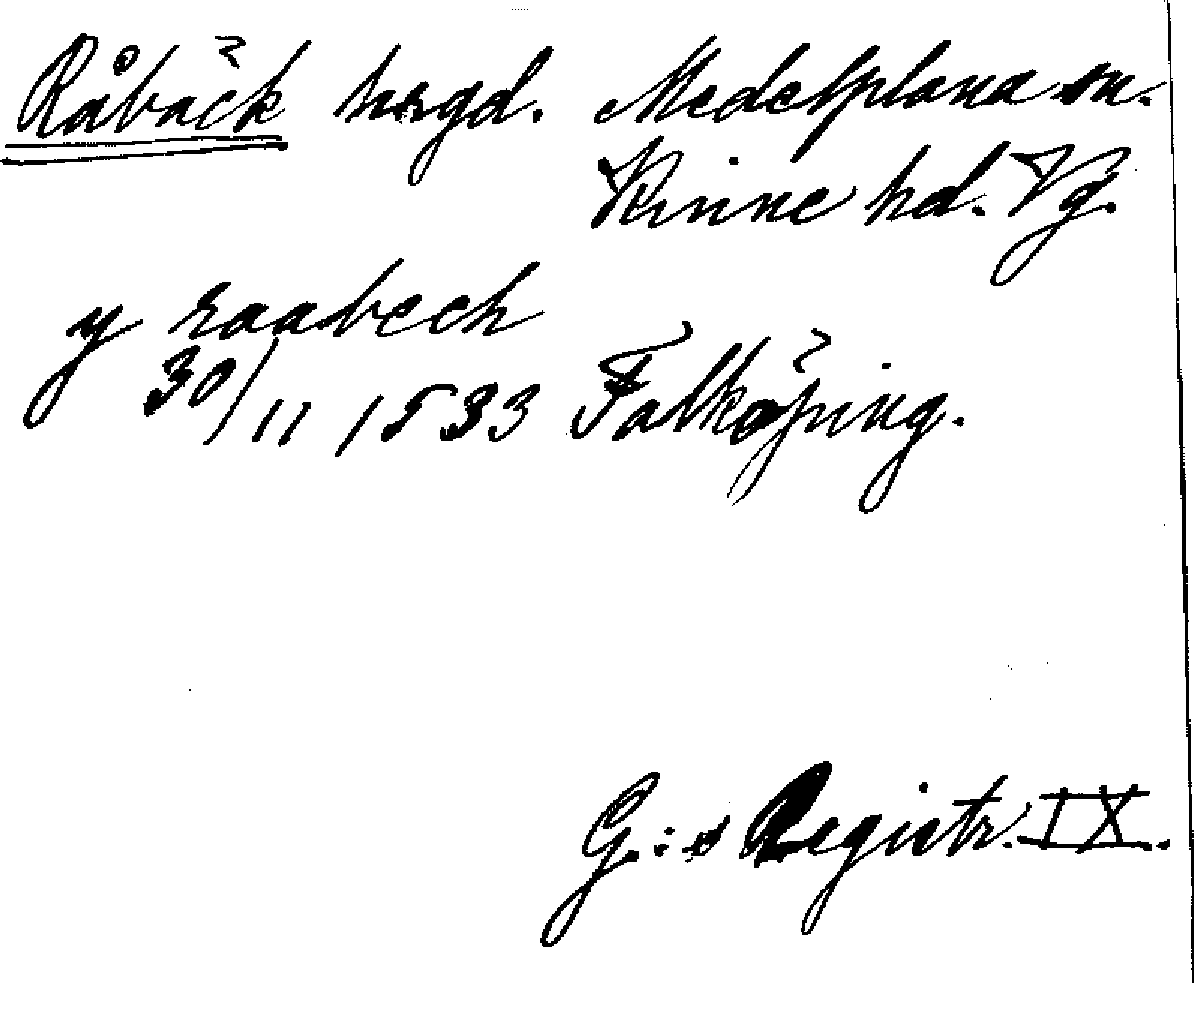 Råbäck hrgd. Medelplana sn.
Kinne hd. Vg.
y raabech
30/11 1533 Falköping.
G.:s Registr. IX.